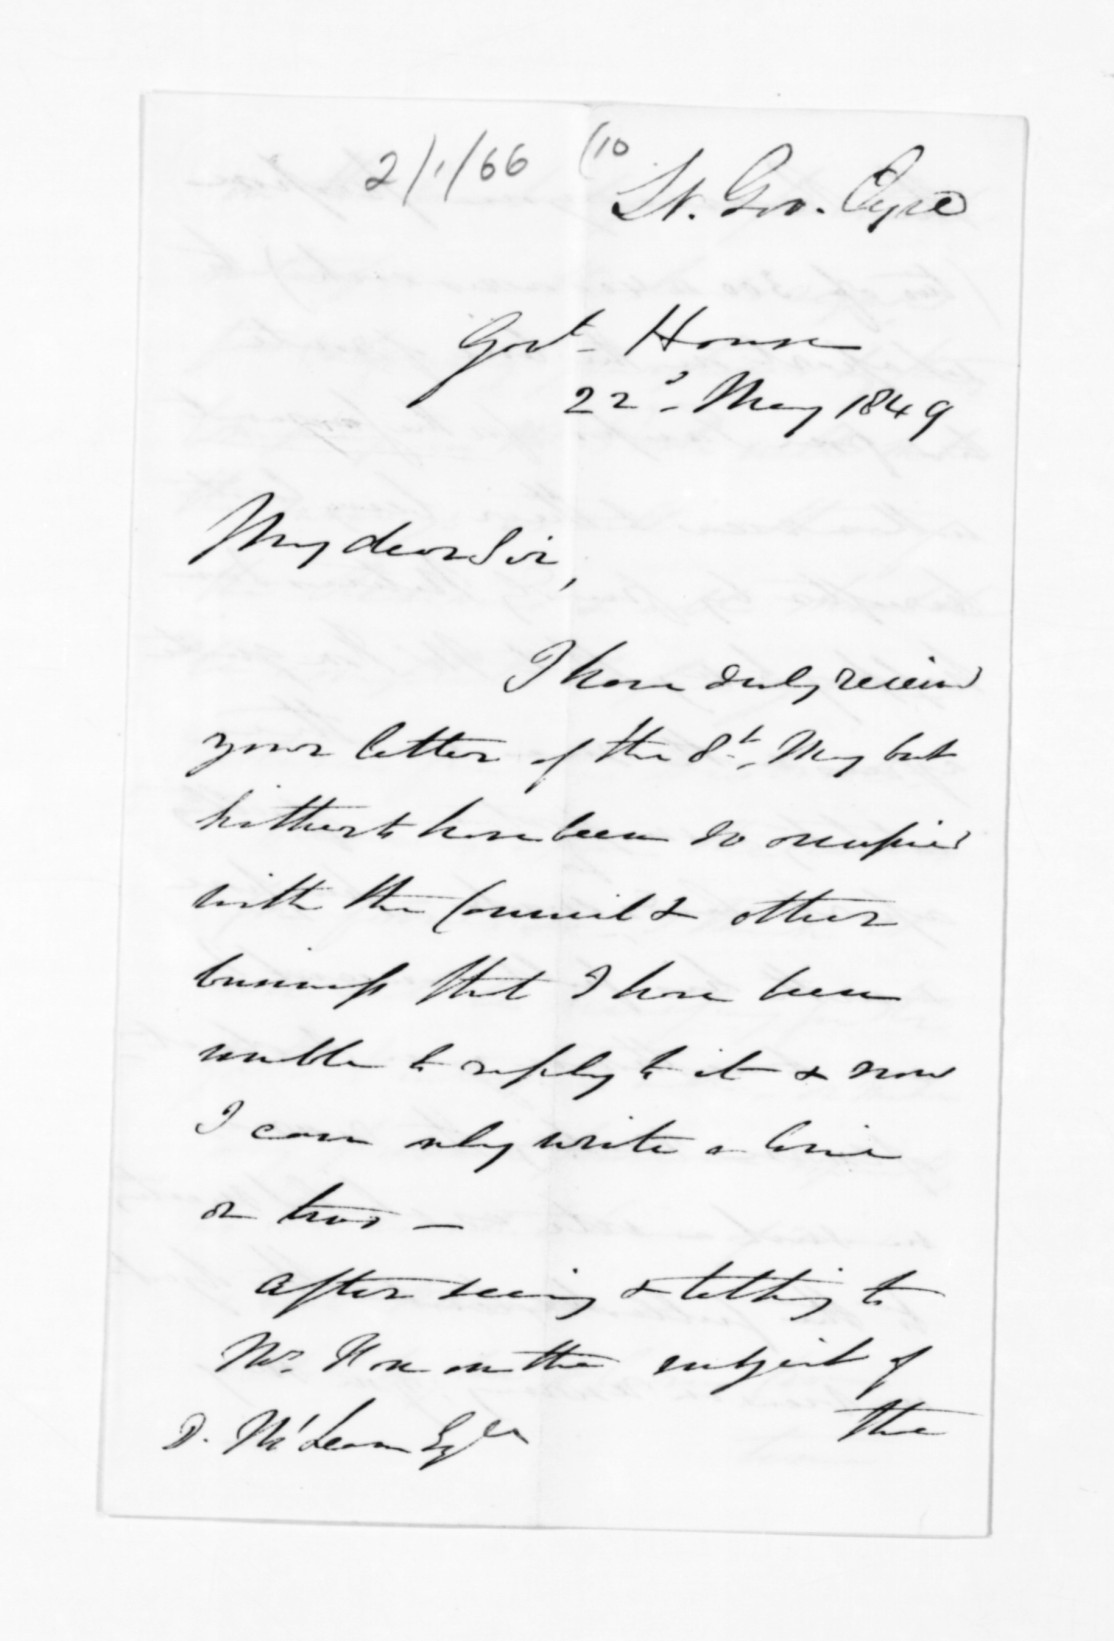 2/1/66 (10
Lt. Gov. Eyre
Govt. House
22d. May 1849
My dear Sir,
I have duly received
your letter of the 8th. May but
hitherto have been so occupied
with the Council & other
business that I have been
unable to reply to it & now
I can only write a line
or two —
After seeing & talking to
Mr. on the subject of
the
D. McLean Esqre